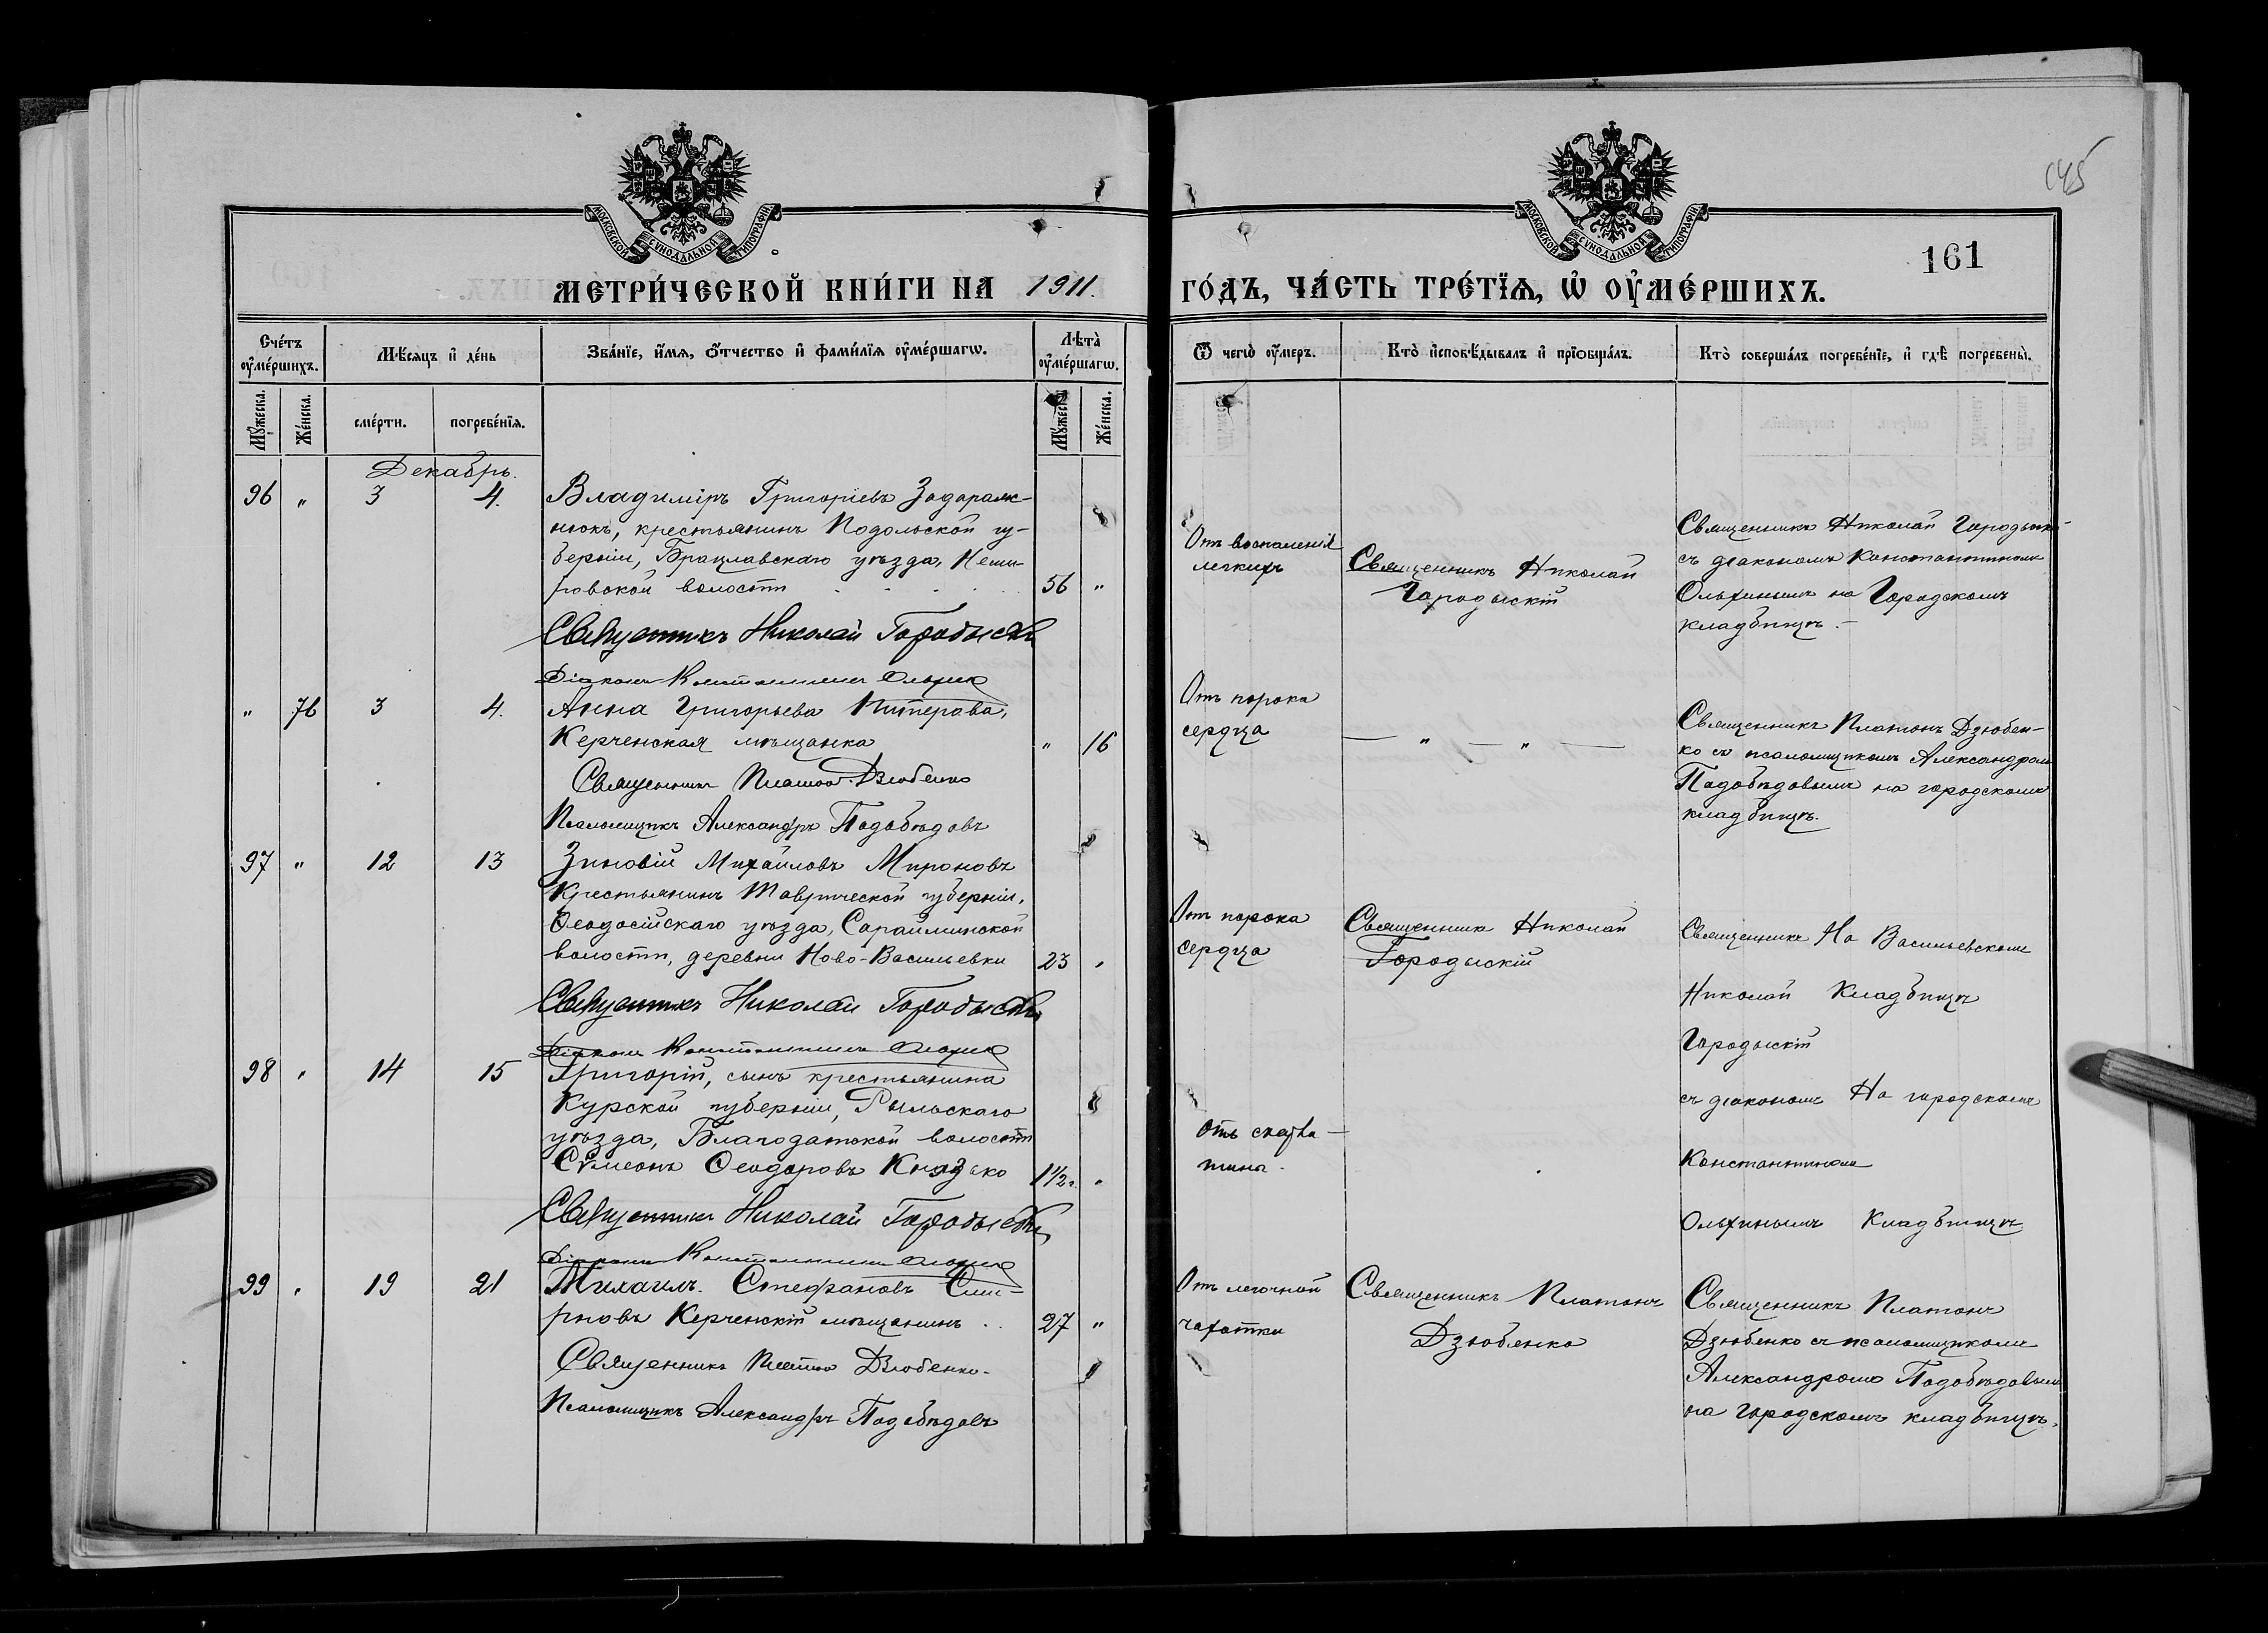 145
161
МОСКОВСКОЙ СѴНОДАЛЬНОЙ ТИПОГРАФІИ
МОСКОВСКОЙ СѴНОДАЛЬНОЙ ТИПОГРАФІИ
МЕТРИ́ЧЕСКОЙ КНИ́ГИ НА 1911.
ГО́ДЪ, ЧА́СТЬ ТРЕ́ТЇѦ, Ѡ҆ ОУ҆МЕ́РШИХЪ.
Сче́тъ оу҆ме́ршихъ.
Мѣ́сѧцъ и҆ де́нь
Зва́нїе, и҆́мѧ, ѻ҆́тчество и҆ фами́лїѧ оу҆ме́ршагѡ.
Лѣ́та оу҆ме́ршагѡ.
Ѿ чегѡ̀ оу҆́меръ.
Кто̀ и҆сповѣ́дывалъ и҆ прїѡбща́лъ.
Кто̀ соверша́лъ погребе́нїе, и҆ гдѣ̀ погребены̀.
Мꙋ́жеска.
Же́нска.
сме́рти.
погребе́нїѧ.
Мꙋ́жеска.
Же́нска.
Декабрь.
96 " 3 4. Владиміръ Григоріевъ Задораж-
нюкъ, крестьянинъ Подольской гу-
берніи, Брацлавскаго уѣзда, Неми-
ровской волости 56 "
Священникъ Николай Городыскій
Діаконъ Константинъ Ольхинъ
Отъ воспаленія
легкихъ
Священникъ Николай
Городыскій
Священникъ Николай Городыскій
съ діакономъ Константиномъ
Ольхинымъ на Городскомъ
кладбищѣ.
" 76 3 4. Анна Григорьева Питерова,
Керченская мѣщанка " 16
Священникъ Платонъ Дзюбенко
Псаломщикъ Александръ Подобѣдовъ
Отъ порока
сердца
— " — " —
Священникъ Платонъ Дзюбен-
ко съ псаломщикомъ Александромъ
Подобѣдовымъ на городскомъ
кладбищѣ.
97 " 12 13 Зиновій Михайловъ Мироновъ
Крестьянинъ Таврической губерніи,
Ѳеодосійскаго уѣзда, Сарайминской
волости, деревни Ново-Васильевки 23 "
Священникъ Николай Городыскій
Діаконъ Константинъ Ольхинъ
Отъ порока
сердца
Священникъ Николай
Городыскій
Священникъ На Васильевскомъ
Николай Кладбищѣ
Городыскій
98 " 14 15 Григорій, сынъ крестьянина
Курской губерніи, Рыльскаго
уѣзда, Благодатской волости
Сѵмеона Ѳеодорова Князько 1½ г. "
Священникъ Николай Городыскій
Діаконъ Константинъ Ольхинъ
Отъ скарла-
тины.
съ діакономъ На городскомъ
Константиномъ
Ольхинымъ Кладбищѣ
99 " 19 21 Михаилъ Стефановъ Сми-
рновъ Керченскій мѣщанинъ .. 27 "
Священникъ Платонъ Дзюбенко.
Псаломщикъ Александръ Подобѣдовъ
Отъ легочной
чахотки
Священникъ Платонъ
Дзюбенко
Священникъ Платонъ
Дзюбенко съ псаломщикомъ
Александромъ Подобѣдовымъ
на городскомъ кладбищѣ.